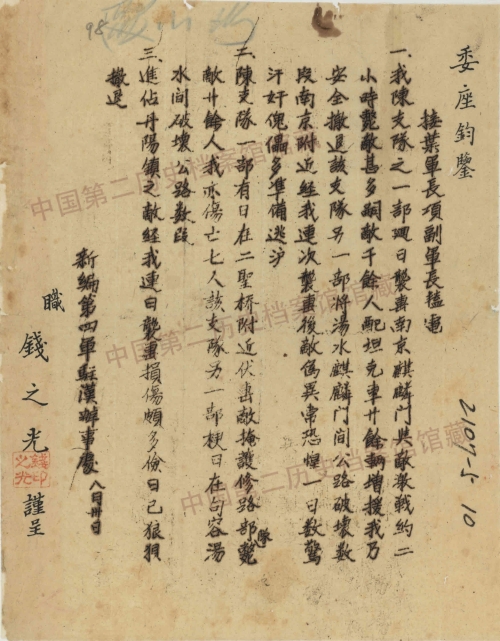 98
委座鈞鑒
2107-5 10
接葉軍長項副軍長電
一、我陳支隊之一部日襲擊南京麒麟門與敵激戰約二
小時斃敵甚多嗣敵千餘人配坦克車廿餘輛增援我乃
安全撤退該支隊另一部將湯水麒麟門間公路破壞數
段南京附近經我連次襲擊後敵偽異常恐惶一日數驚
汗奸傀儡多準備逃沪
二、陳支隊一部有日在二聖桥附近伏击敵掩護修路部隊斃
敵廿餘人我亦傷亡七人該支隊另一部梗日在句容湯
水间破壞公路數段
三、進佔丹陽鎮之敵經我連日襲擊損傷頗多儉日已狼狽
撤退
新編第四軍駐漢辦事處 八月卅日
職 錢之光 謹呈
錢印之光
中国第二历史档案馆馆藏
中国第二历史档案馆馆藏
中国第二历史档案馆馆藏